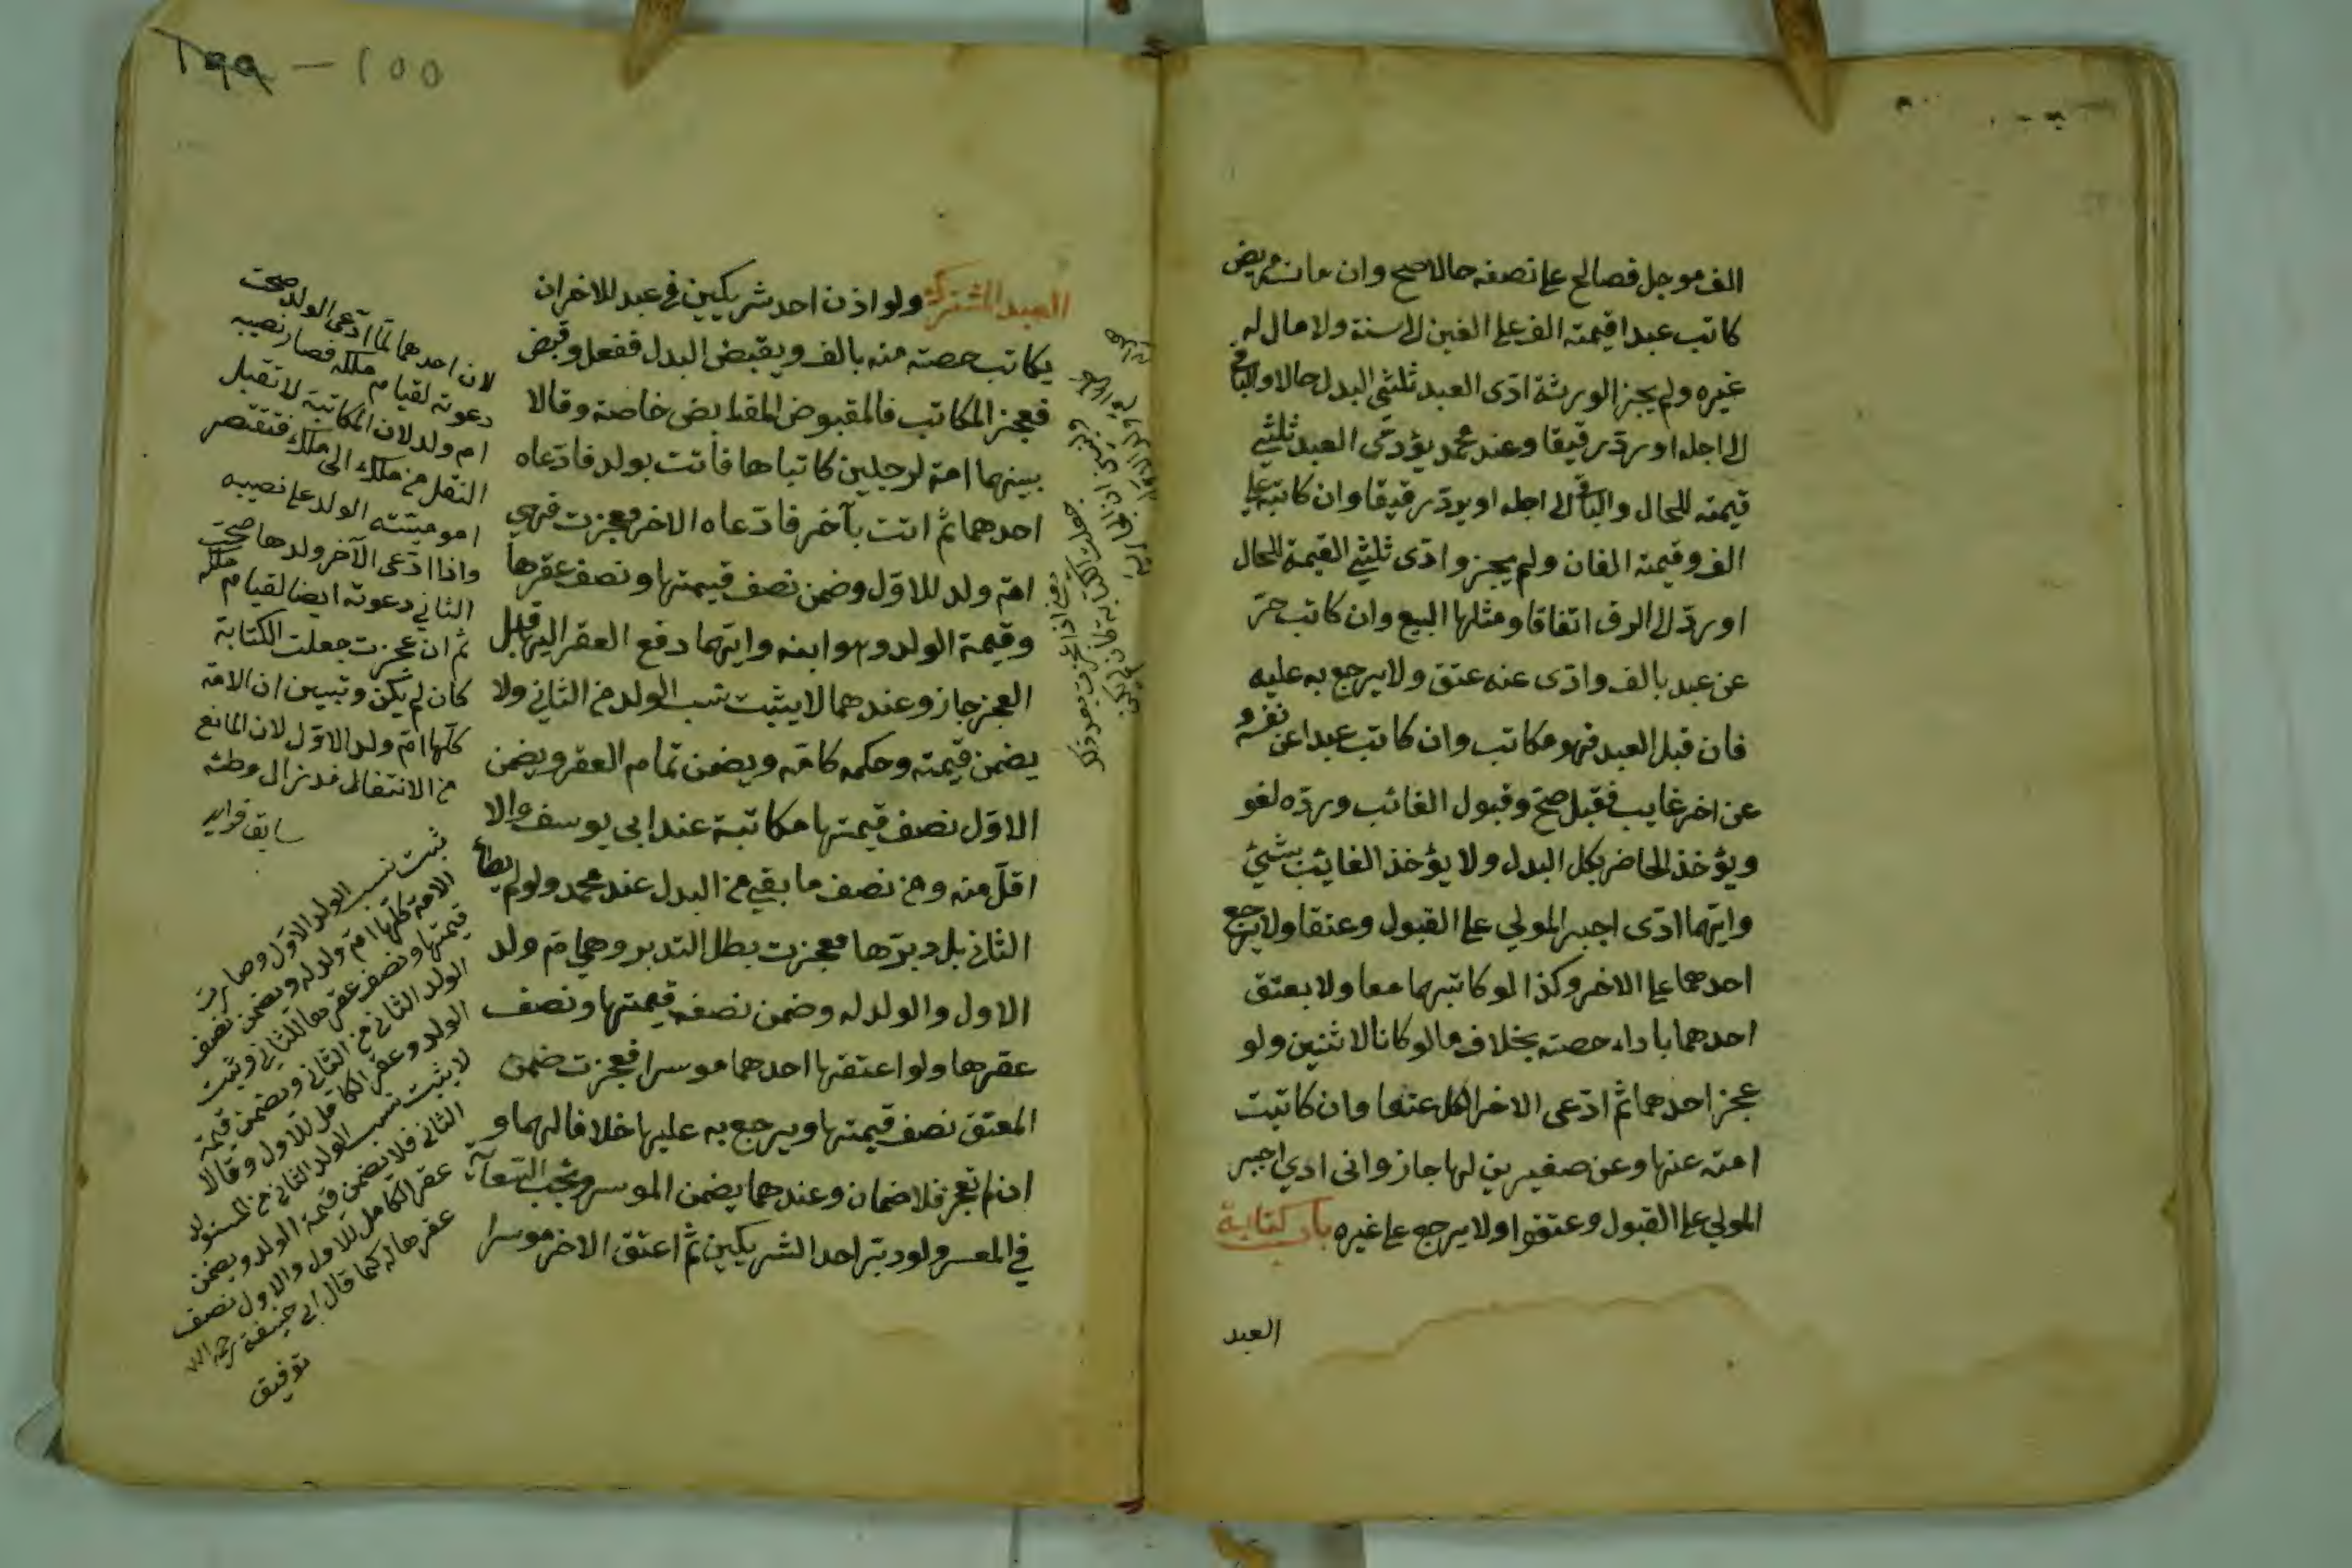 الف موجل فصالح على نصفه حالا صح وان مات مريض
كاتب عبدا قيمته الف على الفين الى سنة ولا مال له
غيره ولم يجز الورثة ادّى العبد ثلثي البدل حالا والباقي
الى اجله او ردّ رقيقا وعند محمد يؤدّى العبد ثلثي
قيمته للحال والباقي الى اجله او يردّ رقيقا وان كاتبه على
الف وقيمته الفان ولم يجيزوا ادّى ثلثي القيمة للحال
او ردّ الى الرق اتفاقا ومثلها البيع وان كاتب حرّ
عن عبد بالف وادّى عنه عتق ولا يرجع به عليه
فان قبل العبد فهو مكاتب وان كاتب عبدا عن نفسه و
عن اخر غايب فقبل صحّ وقبول الغائب وردّه لغو
ويؤخذ الحاضر بكل البدل ولا يؤخذ الغايب بشئ
وايّهما ادّى اجبر المولي على القبول وعتقا ولا يرجع
احدهما على الاخر وكذا لو كاتبهما معا ولا يعتق
احدهما باداء حصته بخلاف ما لو كانا لاثنين ولو
عجز احدهما ثمّ ادّعى الاخر الكل عتقا وان كاتبت
امته عنها وعن صغيرين لها جاز واى ادي اجبر
المولي على القبول وعتقوا ولا يرجع على غيره باب كتابة
العبد
١٥٥ — ١٩٩
العبد المشترك ولو اذن احد شريكين في عبد للاخر ان
يكاتب حصته منه بالف ويقبض البدل ففعل وقبض
فعجز المكاتب فالمقبوض للقابض خاصة وقالا
بينهما امة لرجلين كاتباها فأتت بولد فادّعاه
احدهما ثمّ اتت بآخر فادّعاه الاخر فعجزت فهي
امّ ولد للاوّل وضمن نصف قيمتها ونصف عقرها
وقيمة الولد وهو ابنه وايّهما دفع العقر اليها قبل
العجز جاز وعندهما لا يثبت نسب الولد من الثاني ولا
يضمن قيمته وحكمه كامّه ويضمن تمام العقر ويضمن
الاوّل نصف قيمتها مكاتبة عند ابي يوسف والا
اقلّ منه ومن نصف ما بقي من البدل عند محمد ولو لم يطأ
الثاني بل دبّرها فعجزت بطل التدبير وهي امّ ولد
الاول والولد له وضمن نصفه قيمتها ونصف
عقرها ولو اعتقها احدهما موسرا فعجزت ضمن
المعتق نصف قيمتها ويرجع به عليها خلافا لهما و
ان لم تعجز فلا ضمان وعندهما يضمن الموسر وتجب السعاية
في المعسر ولو دبّر احد الشريكين ثمّ اعتق الاخر موسرا
لان احدهما لمّا ادّعى الولد صحت
دعوته لقيام ملكه فصار نصيبه
ام ولد لان المكاتبة لا تقبل
النقل من ملك الى ملك فتقتصر
امومية الولد على نصيبه
واذا ادّعى الآخر ولدها صحّت
الثاني دعوته ايضا لقيام ملكه
ثم ان عجزت جعلت الكتابة
كان لم يكن وتبين ان الامة
كلّها امّ ولد الاوّل لان المانع
من الانتقال قد زال وطئه
سابق فوايد
ثبت نسب الولد الاوّل وصارت
الامة كلّها امّ ولد له ويضمن نصف
قيمتها ونصف عقرها للثاني وثبت
الولد الثاني من الثاني ويضمن قيمة
الولد وعقر الكامل للاول وقالا
لا يثبت نسب الولد الثاني من المستولد
الثاني فلا يضمن قيمة الولد ويضمن
عقر الكامل للاول والاول نصف
عقرها له كما قال ابي حنيفة رحمه الله
توفيق